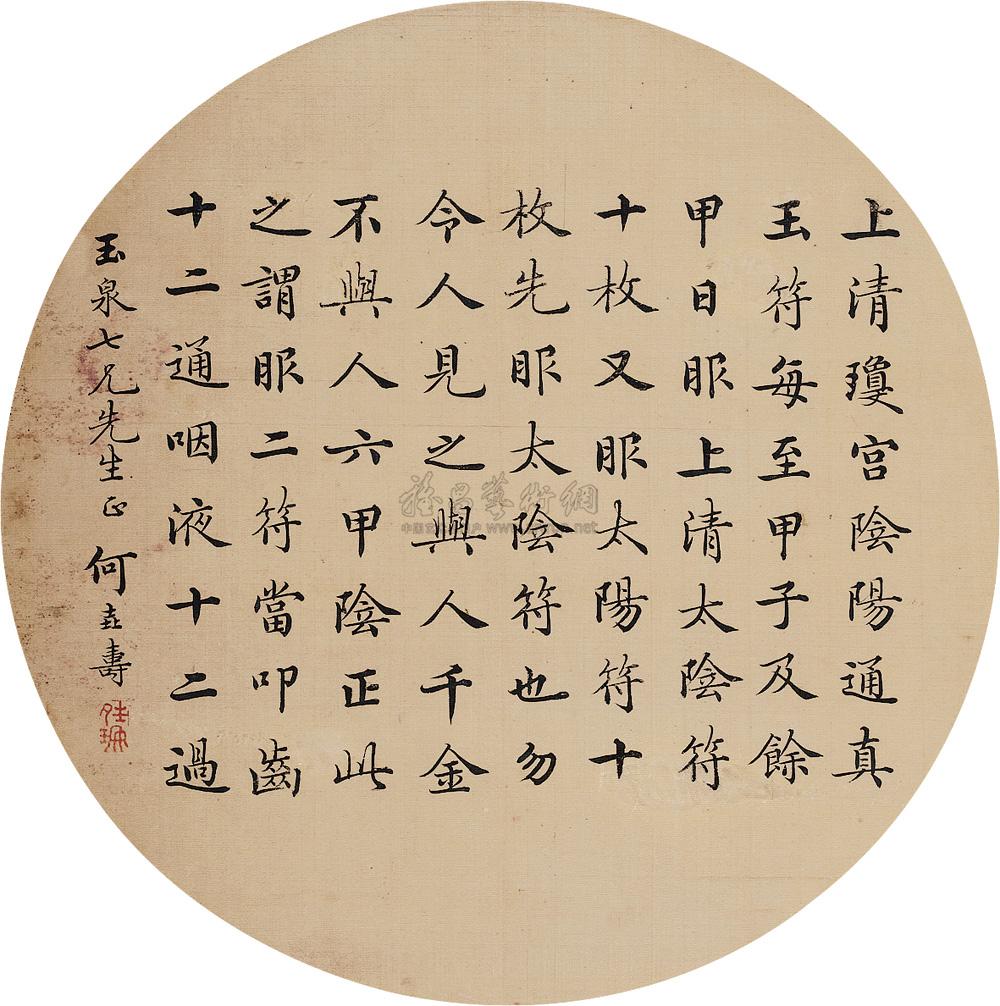 上清瓊宮陰陽通真
玉符每至甲子及餘
甲日服上清太陰符
十枚又服太陽符十
枚先服太陰符也勿
令人見之與人千金
不與人六甲陰正此
之謂服二符當叩齒
十二通咽液十二過
玉泉七兄先生正 何垚壽